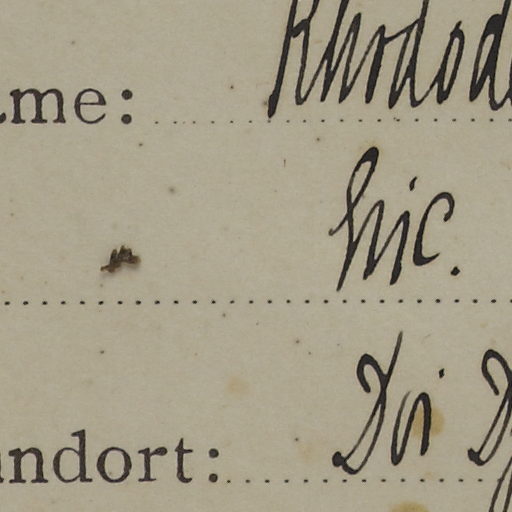 ame: Rhodod
hic.
andort: Doi D